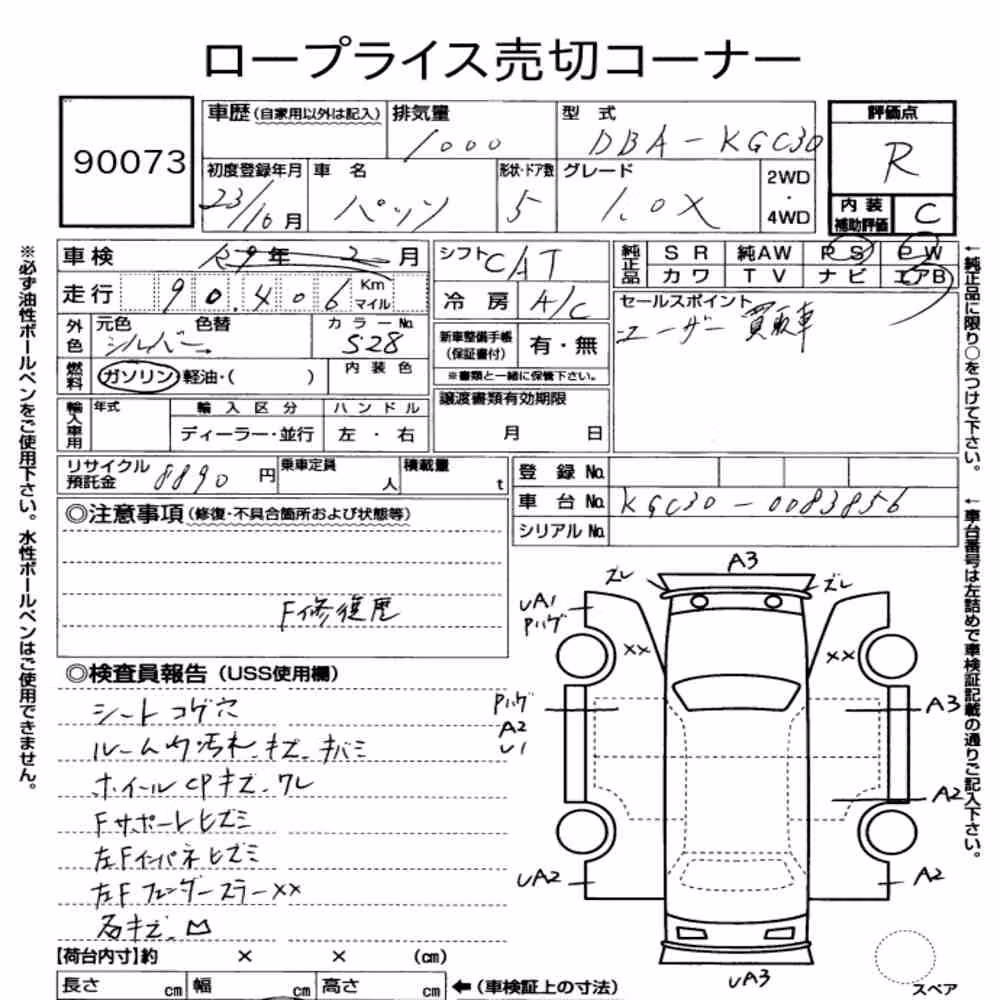 ロープライス売切コーナー
90073
車歴 (自家用以外は記入) 排気量 型 式 評価点
1000 DBA-KGC30 R
初度登録年月 車 名 形状・ドア数 グレード 2WD・4WD 内装補助評価 C
23/10月 パッソ 5 1.0X
車検 R9年 2月 シフト CAT 純正品 SR 純AW PS PW
カワ TV ナビ エアB
走行 90,406 Km マイル 冷房 A/C セールスポイント
ユーザー買取車
外色 元色 色替 カラーNo. 新車整備手帳(保証書付) 有・無
シルバー S28 ※書類と一緒に保管下さい。
燃料 ガソリン・軽油・( ) 内装色 譲渡書類有効期限
月 日
輸入車用 年式 輸入区分 ハンドル
ディーラー・並行 左・右
リサイクル預託金 8890円 乗車定員 人 積載量 t 登録No.
車台No. KGC30-0083856
シリアルNo.
◎注意事項(修復・不具合箇所および状態等)
F修復歴
◎検査員報告(USS使用欄)
シートコゲ穴
ルーム内汚れ.キズ.キバミ
ホイールCPキズ.ワレ
Fサポーレヒズミ
左Fインパネヒズミ
左Fフェンダーステー××
石キズ.
A3
ズレ ズレ
UA1
Pハゲ
×× ××
Pハゲ
A2
U1
A3
A2
UA2 A2
UA3
スペア
【荷台内寸】約 × × (cm)
長さ cm 幅 cm 高さ cm ←(車検証上の寸法)
※必ず油性ボールペンをご使用下さい。水性ボールペンはご使用できません。
←純正品に限り○をつけて下さい。
←車台番号は左詰めで車検証記載の通りご記入下さい。